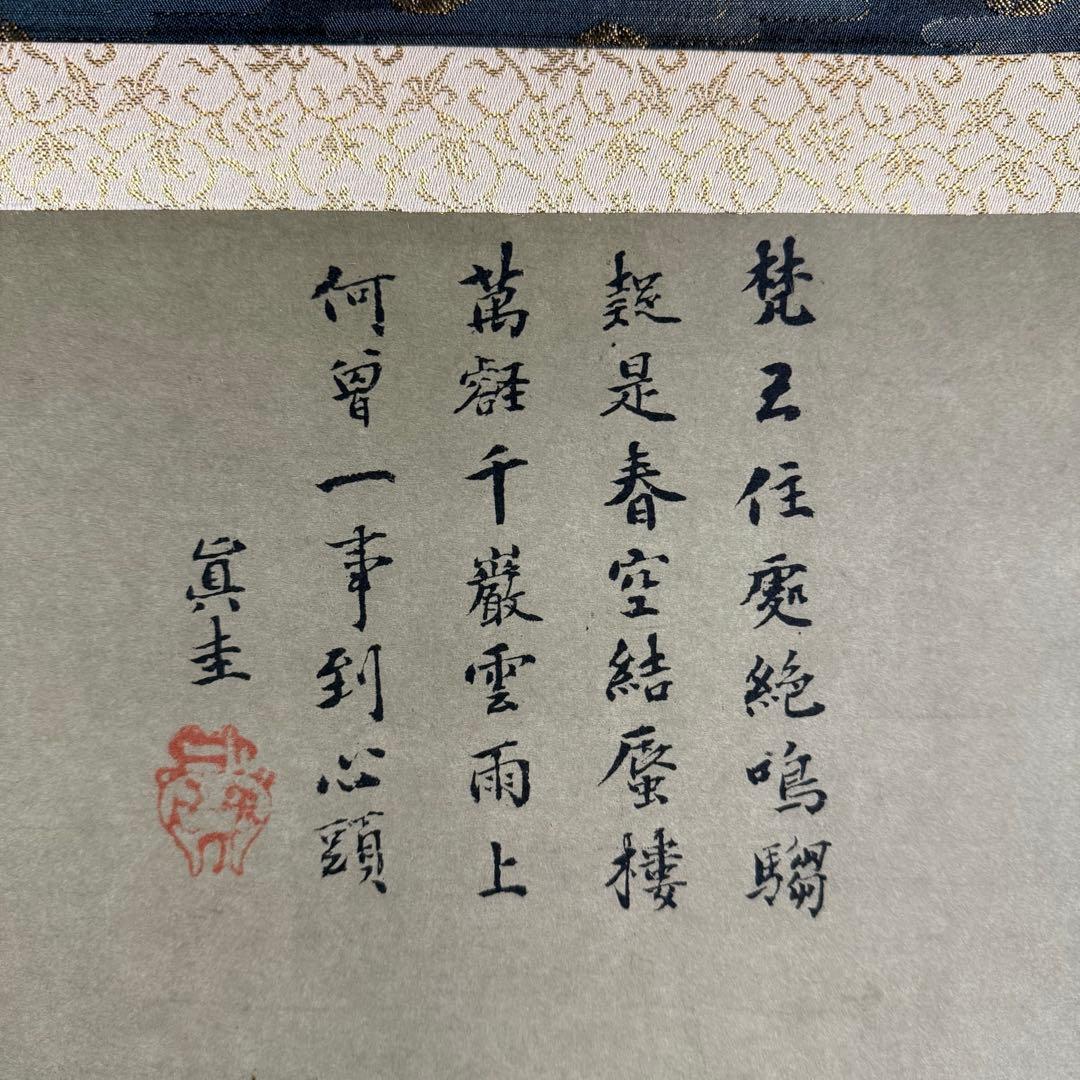 梵王住處絶鳴騶
疑是春空結蜃樓
萬壑千巖雲雨上
何曾一事到心頭
眞圭